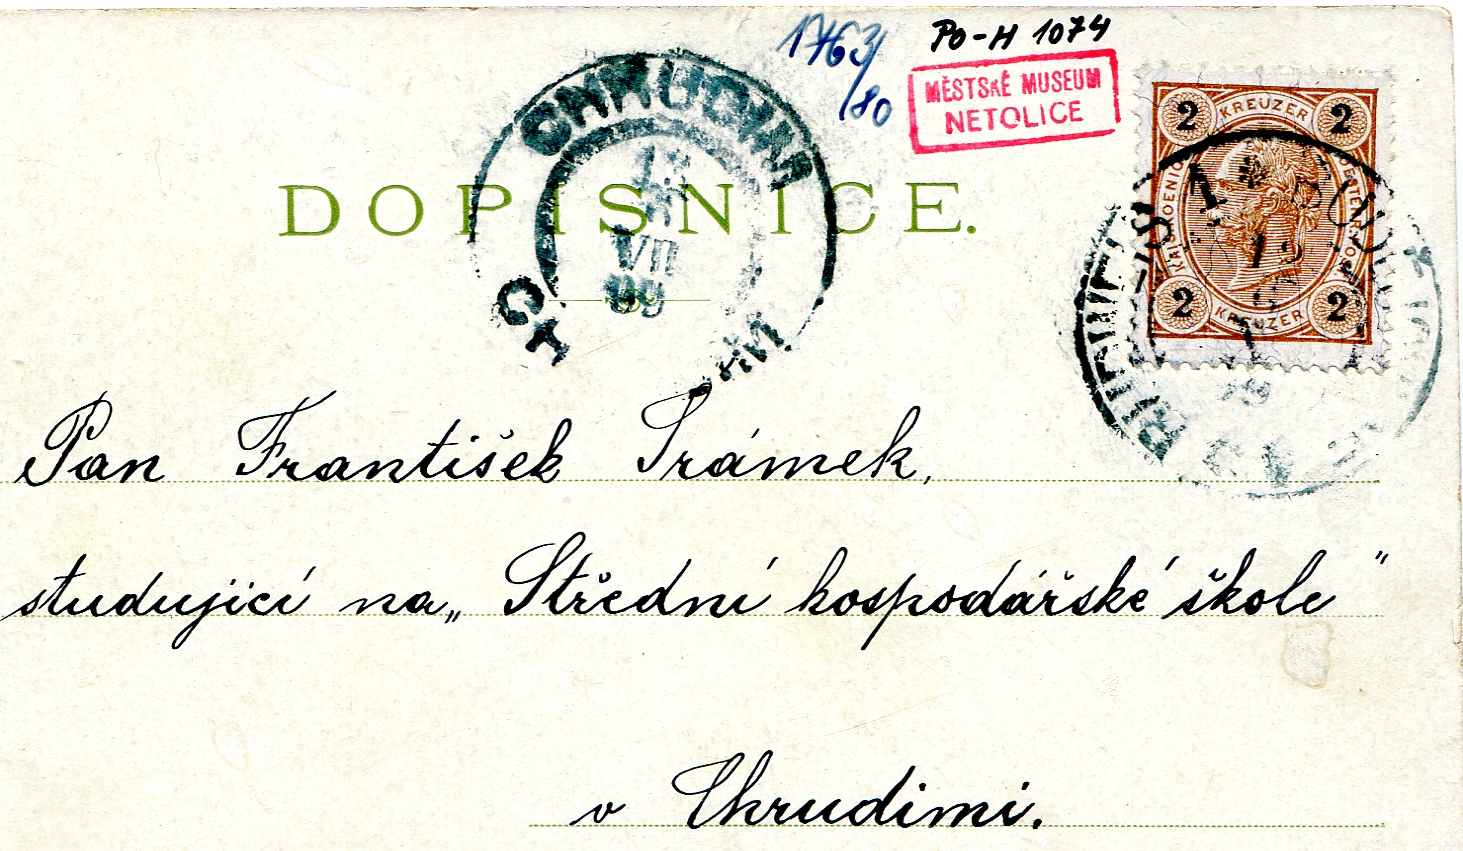 1763/
/80
Po-H 1074
MĚSTSKÉ MUSEUM
NETOLICE
CHRUDIM
VII
99
2 KREUZER 2
2 KREUZER 2
DOPISNICE.
Pan František Srámek,
studující na „Střední hospodářské škole"
v Chrudimi.